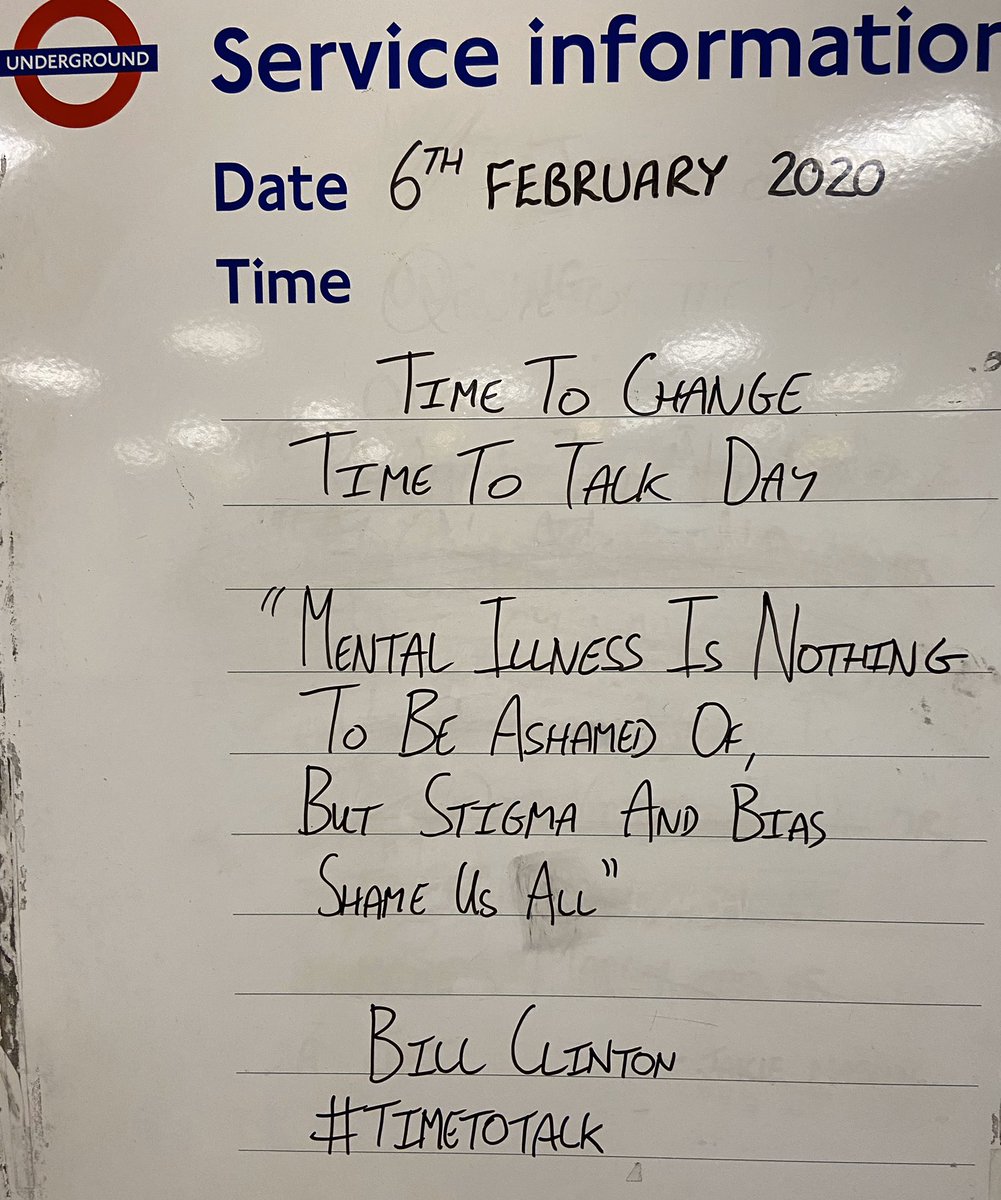 UNDERGROUND
Service information
Date 6TH FEBRUARY 2020
Time
TIME TO CHANGE
TIME TO TALK DAY
"MENTAL ILLNESS IS NOTHING
TO BE ASHAMED OF,
BUT STIGMA AND BIAS
SHAME US ALL"
BILL CLINTON
#TIMETOTALK